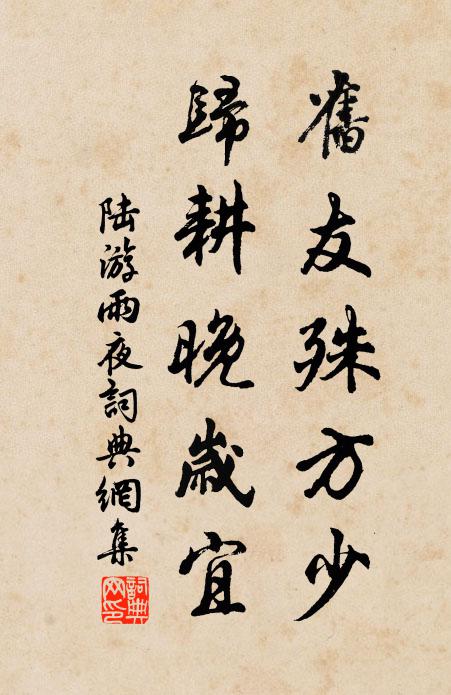 舊友殊方少
歸耕晚歲宜
陸游雨夜詞典網集
詞典網印